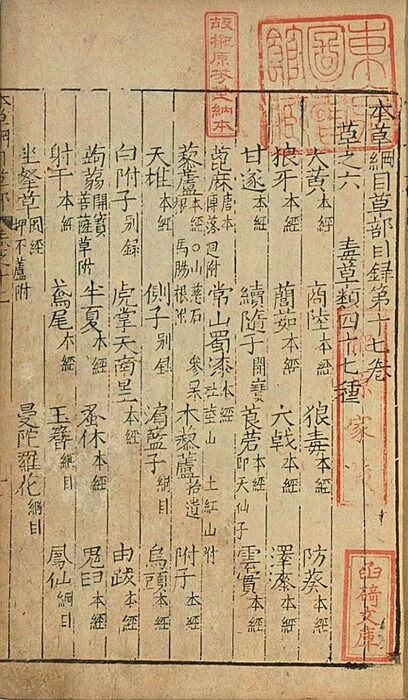 本草綱目草部目録第十七卷
草之六 毒草類四十七種
大黃本經 商陸本經 狼毒本經 防葵本經
狼牙本經 䕡茹本經 大戟本經 澤漆本經
甘遂本經 續隨子開寶 莨菪本經即天仙子 雲實本經
蓖麻唐本博落迴附 常山蜀漆本經杜莖山土紅山附
藜蘆本經○山慈石參果根馬腸根附 木藜蘆拾遺 附子本經
天雄本經 側子別録 漏籃子綱目 烏頭本經
白附子別録 虎掌天南星本經 由跋本經
蒟蒻開寶菩薩草附 半夏本經 蚤休本經 鬼臼本經
射干本經 鳶尾本經 玉簪綱目 鳳仙綱目
坐拏草圖經押不蘆附 曼陀羅花綱目
故榊原芳埜納本
函碕文庫